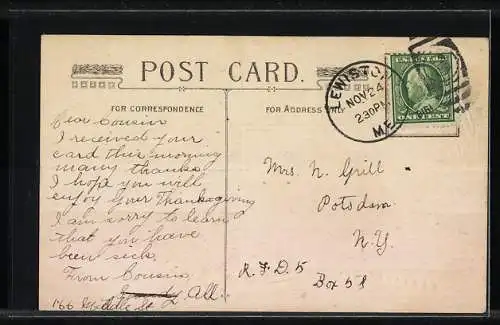 POST CARD.
FOR CORRESPONDENCE
FOR ADDRESS ONLY
LEWISTON
NOV 24
230P
ME.
ONE CENT
Dear Cousin
I received your
card this morning
many thanks
I hope you will
enjoy your Thanksgiving
I am sorry to learn
that you have
been sick.
From Cousin
166 Middle St
Mrs. N. Grill
Potsdam
N.Y.
R.F.D. 5
Box 51